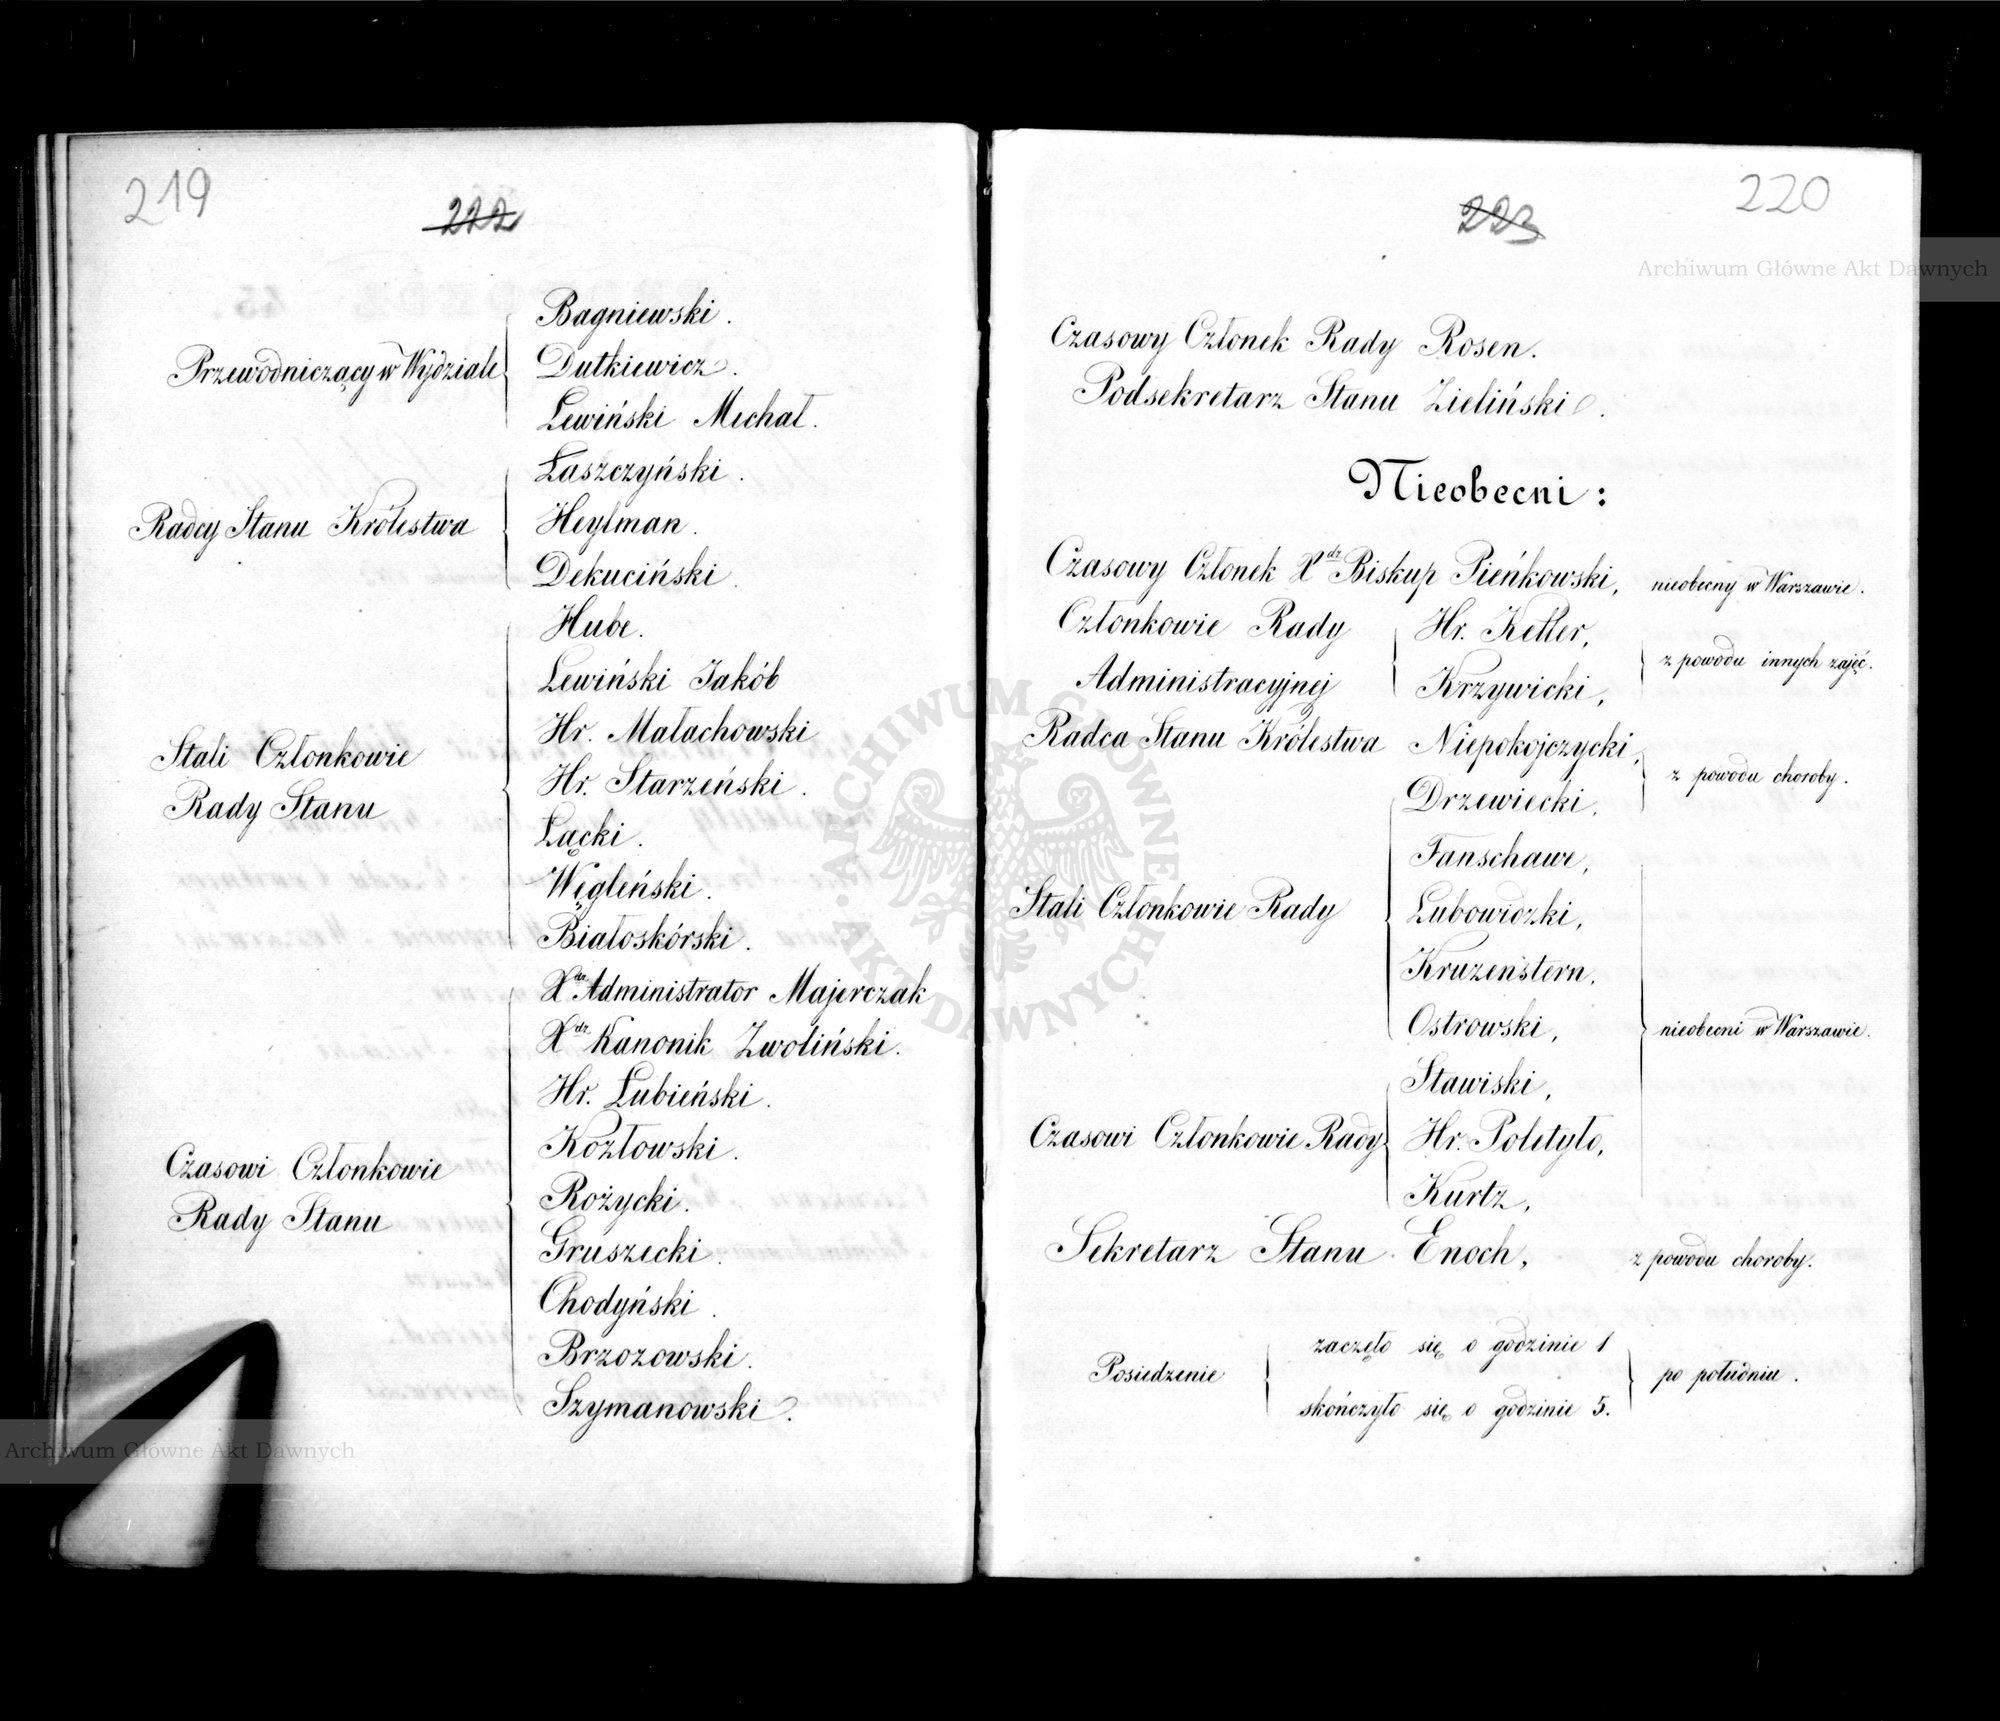 219
222
Bagniewski.
Przewodniczący w Wydziale Dutkiewicz.
Lewiński Michał.
Łaszczyński.
Radcy Stanu Królestwa Heylman.
Dekuciński.
Hube.
Lewiński Jakób
Hr. Małachowski
Stali Członkowie
Hr. Starzeński.
Rady Stanu
Łącki.
Węgleński.
Białoskórski.
Xdz Administrator Majerczak
Xdz Kanonik Zwoliński.
Hr. Łubieński.
Kozłowski.
Czasowi Członkowie
Rożycki.
Rady Stanu
Gruszecki.
Chodyński.
Brzozowski.
Szymanowski.
220
223
Czasowy Członek Rady Rosen.
Podsekretarz Stanu Zieliński.
Nieobecni:
Czasowy Członek Xdz Biskup Pieńkowski, nieobecny w Warszawie.
Członkowie Rady Hr. Keller,
z powodu innych zajęć.
Administracyjnej Krzywicki,
Radca Stanu Królestwa Niepokojczycki,
z powodu choroby.
Drzewiecki,
Fanschawe,
Stali Członkowie Rady Lubowidzki,
Kruzenstern,
Ostrowski, nieobecni w Warszawie.
Stawiski,
Czasowi Członkowie Rady Hr. Poletyło,
Kurtz,
Sekretarz Stanu Enoch, z powodu choroby.
zaczęło się o godzinie 1
Posiedzenie po południu.
skończyło się o godzinie 5.
Archiwum Główne Akt Dawnych
Archiwum Główne Akt Dawnych
ARCHIWUM GŁÓWNE AKT DAWNYCH